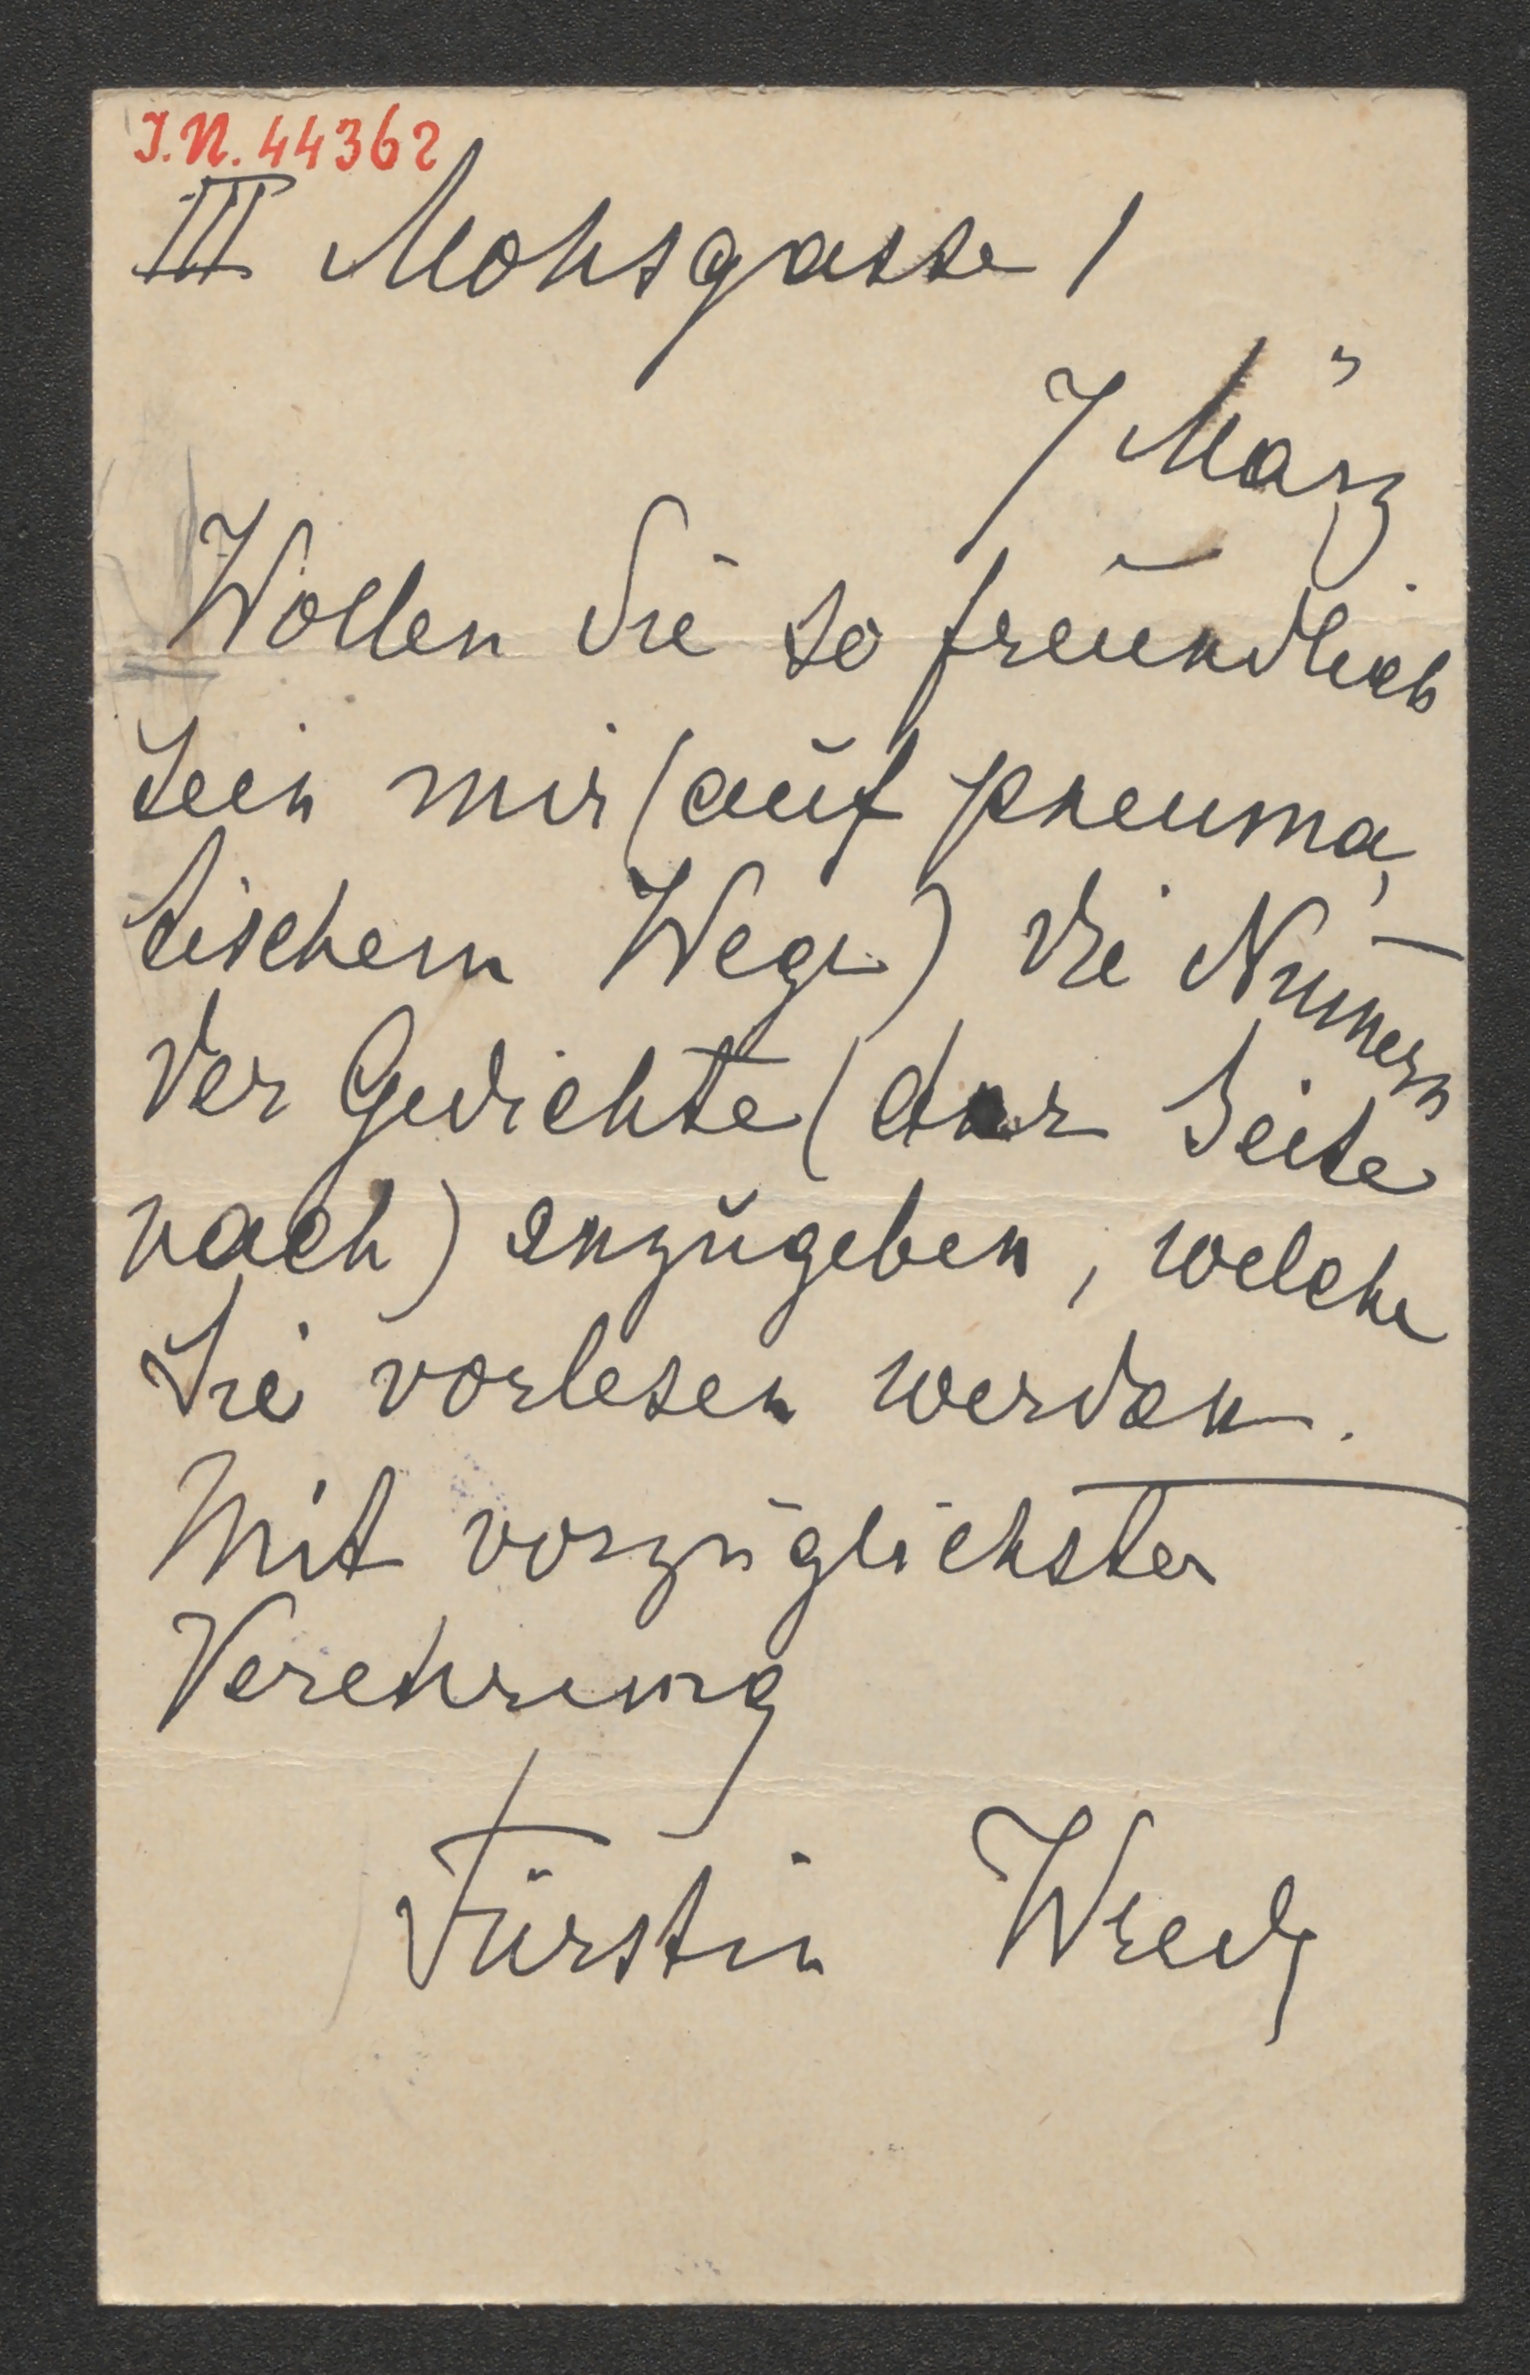 I.N. 44362
III Mohsgasse 1
7 März
Wollen Sie so freundlich
sein mir (auf pneuma,
tischem Wege) die Num̄ern
der Gedichte (der Seite
nach) anzugeben, welche
Sie vorlesen werden.
Mit vorzüglichster
Verehrung
Fürstin Wrede